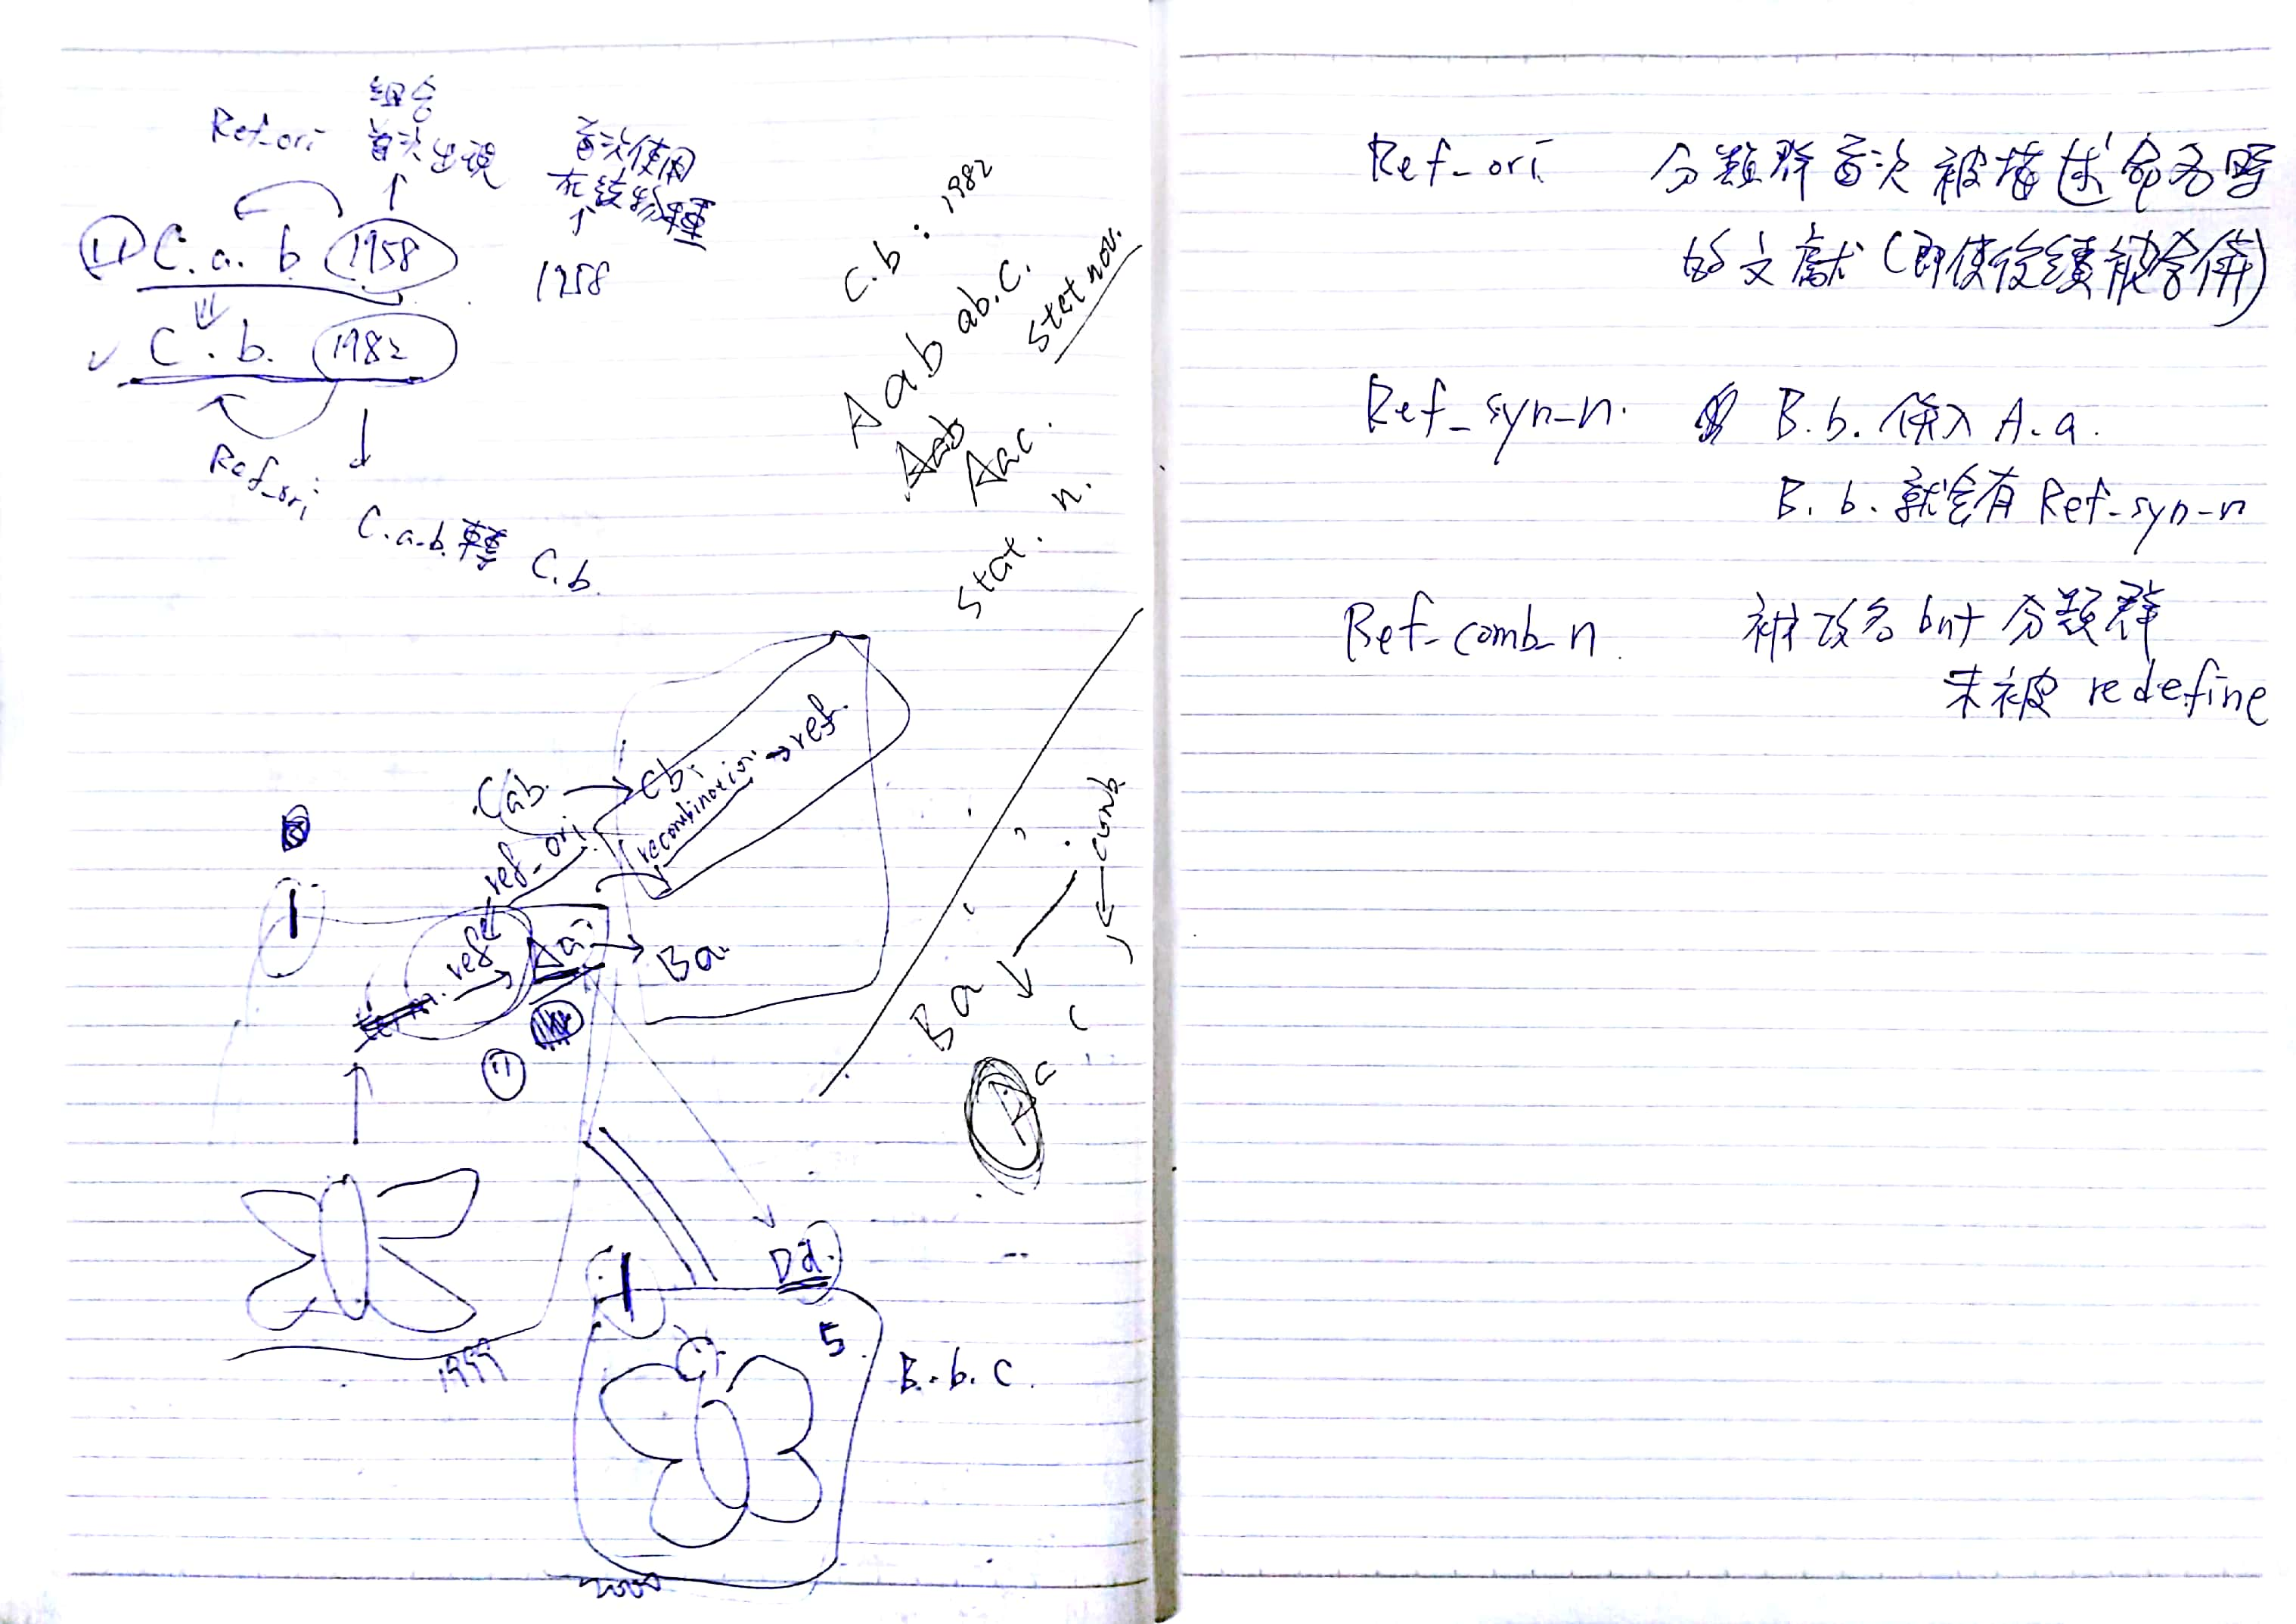 組合
Ref_ori 首次出現
首次使用
在這物種
C.a. b 1958
1958
C. b. 1982
Ref_ori
C.a.b. 轉 C.b.
C.b : 1982
A a b ab.c.
stat nov.
Aab
Aac.
stat. n.
Cab. → Cb.
recombination → ref.
ref_ori
ref
Aa. → Ba.
comb
Ba
1999
Dd.
5
B.b.c.
2000
Ref_ori 分類群首次被描述命名時
的文獻(即使後續被合併)
Ref_syn_n. B.b. 併入 A.a.
B.b. 就會有 Ref_syn_n
Ref_comb_n 被改名 but 分類群
未被 redefine